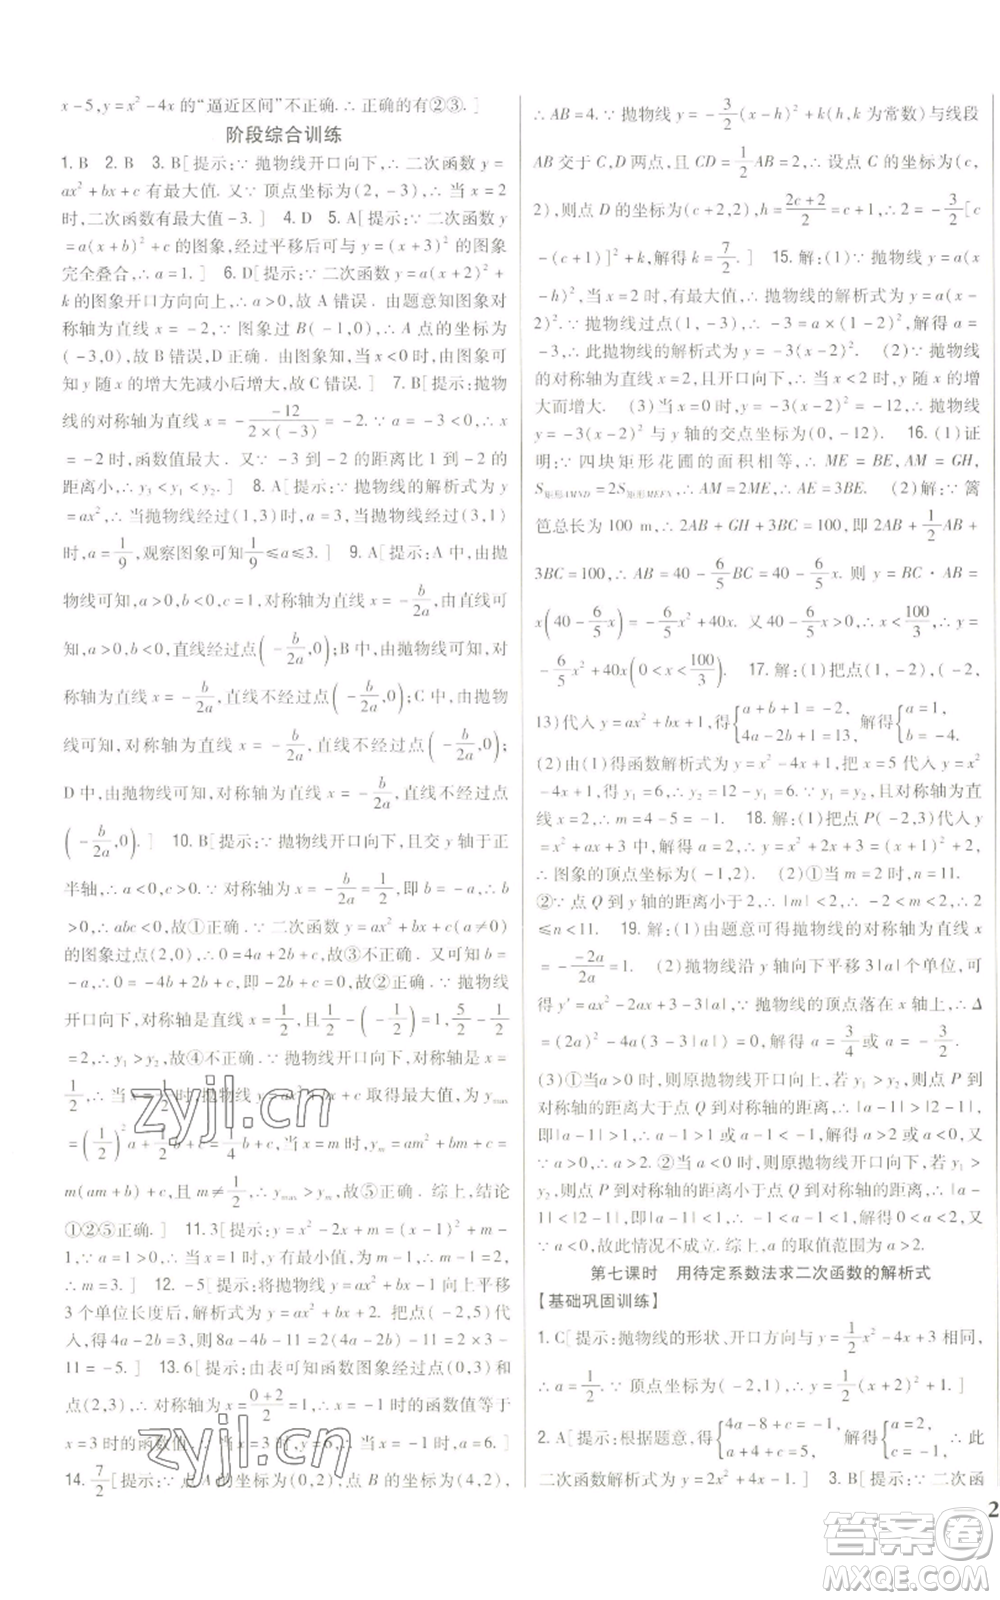 x-5,y=x²-4x的“逼近区间”不正确.∴正确的有②③.]
阶段综合训练
1. B 2. B 3. B[提示:∵抛物线开口向下,∴二次函数y=
ax²+bx+c有最大值.又∵顶点坐标为(2,-3),∴当x=2
时,二次函数有最大值-3.] 4. D 5. A[提示:∵二次函数y
=a(x+b)²+c的图象,经过平移后可与y=x²的图象
完全叠合,∴a=1.] 6. D[提示:∵二次函数y=a(x+2)²+
k的图象开口方向向上,∴a>0,故A错误.由题意知图象对
称轴为直线x=-2,∵图象过B(-1,0),∴A点的坐标为
(-3,0),故B错误,D正确.由图象知,当x<0时,由图象可
知y随x的增大先减小后增大,故C错误.] 7. B[提示:抛物
线的对称轴为直线x=-\frac{-12}{2×(-3)}=-2.∵a=-3<0,∴x
=-2时,函数值最大.又∵-3到-2的距离比1到-2的
距离小,∴y₃<y₁<y₂.] 8. A[提示:抛物线的解析式为y
=ax²,∴当抛物线经过(1,3)时,a=3,当抛物线经过(3,1)
时,a=\frac{1}{9},观察图象可知\frac{1}{9}≤a≤3.] 9. A[提示:A中,由抛
物线可知,a>0,b<0,c=1,对称轴为直线x=-\frac{b}{2a},由直线可
知,a>0,b<0,直线经过点(-\frac{b}{2a},0);B中,由抛物线可知,对
称轴为直线x=-\frac{b}{2a},直线不经过点(-\frac{b}{2a},0);C中,由抛物
线可知,对称轴为直线x=-\frac{b}{2a},直线不经过点(-\frac{b}{2a},0);
D中,由抛物线可知,对称轴为直线x=-\frac{b}{2a},直线不经过点
(-\frac{b}{2a},0).] 10. B[提示:∵抛物线开口向下,且交y轴于正
半轴,∴a<0,c>0.∵对称轴x=-\frac{b}{2a}=\frac{1}{2},即b=-a,∴b
>0,∴abc<0,故①正确.∵二次函数y=ax²+bx+c(a≠0)
的图象过点(2,0),∴0=4a+2b+c,故③不正确.又可知b=
-a,∴0=-4b+2b+c,即-2b+c=0,故②正确.∵抛物线
开口向下,对称轴是直线x=\frac{1}{2},且\frac{1}{2}-(-\frac{1}{2})=1,\frac{5}{2}-\frac{1}{2}
=2,∴y₁>y₂,故④不正确.∵抛物线开口向下,对称轴是x=
\frac{1}{2},∴当x=\frac{1}{2}时,抛物线y取得最大值,为y_{max}
=(\frac{1}{2})²a+\frac{1}{2}b+c=\frac{1}{4}b+c,当x=m时,y_m=am²+bm+c=
m(am+b)+c,∵m≠\frac{1}{2},∴y_{max}>y_m,故⑤正确.综上,结论
①②⑤正确.] 11. 3[提示:y=x²-2x+m=(x-1)²+m-
1,∵a=1>0,∴当x=1时,y有最小值,为m-1,∴m-1=
2,∴m=3.] 12. -5[提示:将抛物线y=ax²+bx-1向上平移
3个单位长度后,解析式为y=ax²+bx+2.把点(-2,5)代
入,得4a-2b=3,则8a-4b-11=2(4a-2b)-11=2×3-11
=-5.] 13. 6[提示:由表可知函数图象经过点(0,3)和
点(2,3),∴对称轴为x=\frac{0+2}{2}=1,∴x=-1时的函数值等于
x=3时的函数值.∵当x=3时,y=6,∴当x=-1时,a=6.]
14. \frac{7}{2}[提示:∵点A的坐标为(0,2),点B的坐标为(4,2),
∴AB=4.∵抛物线y=-\frac{3}{2}(x-h)²+k(h,k为常数)与线段
AB交于C,D两点,且CD=\frac{1}{2}AB=2,∴设点C的坐标为(c,
2),则点D的坐标为(c+2,2),h=\frac{2c+2}{2}=c+1,∴2=-\frac{3}{2}[c
-(c+1)]²+k,解得k=\frac{7}{2}.] 15. 解:(1)∵抛物线y=a(x
-h)²,当x=2时,有最大值,∴抛物线的解析式为y=a(x-
2)².∵抛物线过点(1,-3),∴-3=a×(1-2)²,解得a=
-3,∴此抛物线的解析式为y=-3(x-2)². (2)∵抛物线
的对称轴为直线x=2,且开口向下,∴当x<2时,y随x的增
大而增大. (3)当x=0时,y=-3×(0-2)²=-12,∴抛物线
y=-3(x-2)²与y轴的交点坐标为(0,-12). 16. (1)证
明:∵四块矩形花圃的面积相等,∴ME=BE,AM=GH,
S_{矩形AMND}=2S_{矩形MEFN},∴AM=2ME,∴AE=3BE. (2)解:∵篱
笆总长为100 m,∴2AB+GH+3BC=100,即2AB+\frac{1}{2}AB+
3BC=100,∴AB=40-\frac{6}{5}BC=40-\frac{6}{5}x. 则y=BC·AB=
x(40-\frac{6}{5}x)=-\frac{6}{5}x²+40x. 又又0<x<\frac{100}{3},∴y=
-\frac{6}{5}x²+40x(0<x<\frac{100}{3}). 17. 解:(1)把点(1,-2),(-2,
13)代入y=ax²+bx+1,得{a+b+1=-2, 4a-2b+1=13, 解得{a=1, b=-4.
(2)由(1)得函数解析式为y=x²-4x+1,把x=5代入y=x²
-4x+1,得y₁=6,∴y₂=12-y₁=6.∵y₁=y₂,对称轴为直
线x=2,∴m=4-5=-1. 18. 解:(1)把点P(-2,3)代入
y=x²+ax+3中,得a=2,∴y=x²+2x+3=(x+1)²+2,
∴图象的顶点坐标为(-1,2). (2)①当m=2时,n=11.
②∵点Q到y轴的距离小于2,∴|m|<2,∴-2<m<2,∴2
≤n<11. 19. 解:(1)由题意可得抛物线的对称轴为直线
x=-\frac{-2a}{2a}=1. (2)抛物线沿y轴向下平移3|a|个单位,可
得y'=ax²-2ax+3-3|a|,∵抛物线的顶点落在x轴上,∴Δ
=(2a)²-4a(3-3|a|)=0,解得a=\frac{3}{4}或a=-\frac{3}{2}.
(3)①当a>0时,则原抛物线开口向上,若y₁>y₂,则点P到
对称轴的距离大于点Q到对称轴的距离,∴|a-1|>|2-1|,
即|a-1|>1,∴a-1>1或a-1<-1,解得a>2或a<0.又
∵a>0,∴a>2.②当a<0时,∵抛物线开口向下,若y₁>
y₂,则点P到对称轴的距离小于点Q到对称轴的距离,∴|a-
1|<|2-1|,即|a-1|<1,∴-1<a-1<1,解得0<a<2.又
∵a<0,故此情况不成立.综上,a的取值范围为a>2.
第七课时 用待定系数法求二次函数的解析式
【基础巩固训练】
1. C[提示:抛物线的形状、开口方向与y=\frac{1}{2}x²-4x+3相同,
∴a=\frac{1}{2}.∵顶点坐标为(-2,1),∴y=\frac{1}{2}(x+2)²+1.]
2. A[提示:根据题意,得{4a-8+c=-2, a+4+c=4, 解得{a=2, c=-2. ∴此
二次函数解析式为y=2x²+4x-2.] 3. B[提示:∵二次函
2
zyjl.cn
zyjl.cn
答案圈
MXQE.COM